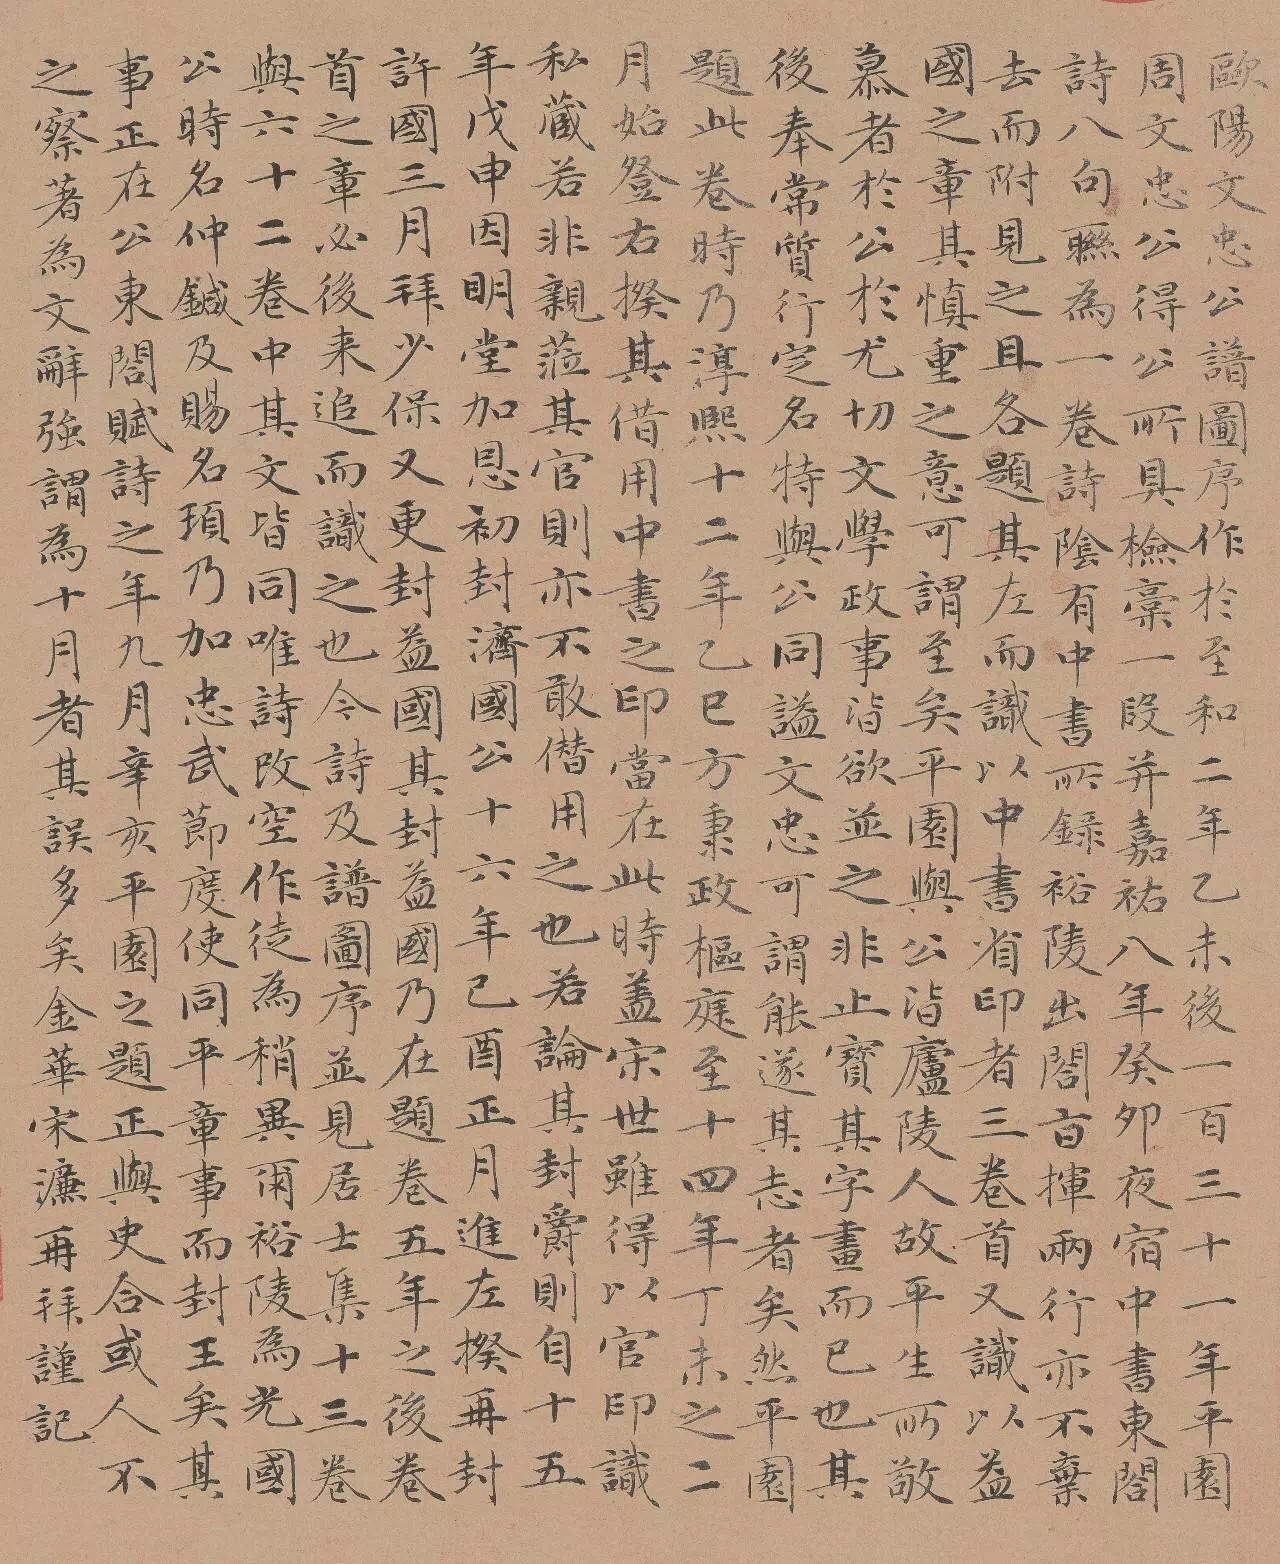 歐陽文忠公譜圖序作於至和二年乙未後一百三十一年平園
周文忠公得公所具檢稾一段并嘉祐八年癸卯夜宿中書東閤
詩八句聯為一卷詩陰有中書所錄裕陵出閤旨揮兩行亦不棄
去而附見之且各題其左而識以中書省印者三卷首又識以益
國之章其慎重之意可謂至矣平園與公皆廬陵人故平生所敬
慕者於公於尤切文學政事皆欲並之非止寶其字畫而已也其
後奉常質行定名特與公同謚文忠可謂能遂其志者矣然平園
題此卷時乃淳熙十二年乙巳方秉政樞庭至十四年丁未之二
月始登右揆其借用中書之印當在此時蓋宋世雖得以官印識
私藏若非親蒞其官則亦不敢僭用之也若論其封爵則自十五
年戊申因明堂加恩初封濟國公十六年己酉正月進左揆再封
許國三月拜少保又更封益國其封益國乃在題卷五年之後卷
首之章必後来追而識之也今詩及譜圖序並見居士集十三卷
與六十二卷中其文皆同唯詩改空作徒為稍異爾裕陵為光國
公時名仲鍼及賜名頊乃加忠武節度使同平章事而封王矣其
事正在公東閤賦詩之年九月辛亥平園之題正與史合或人不
之察著為文辭強謂為十月者其誤多矣金華宋濂再拜謹記